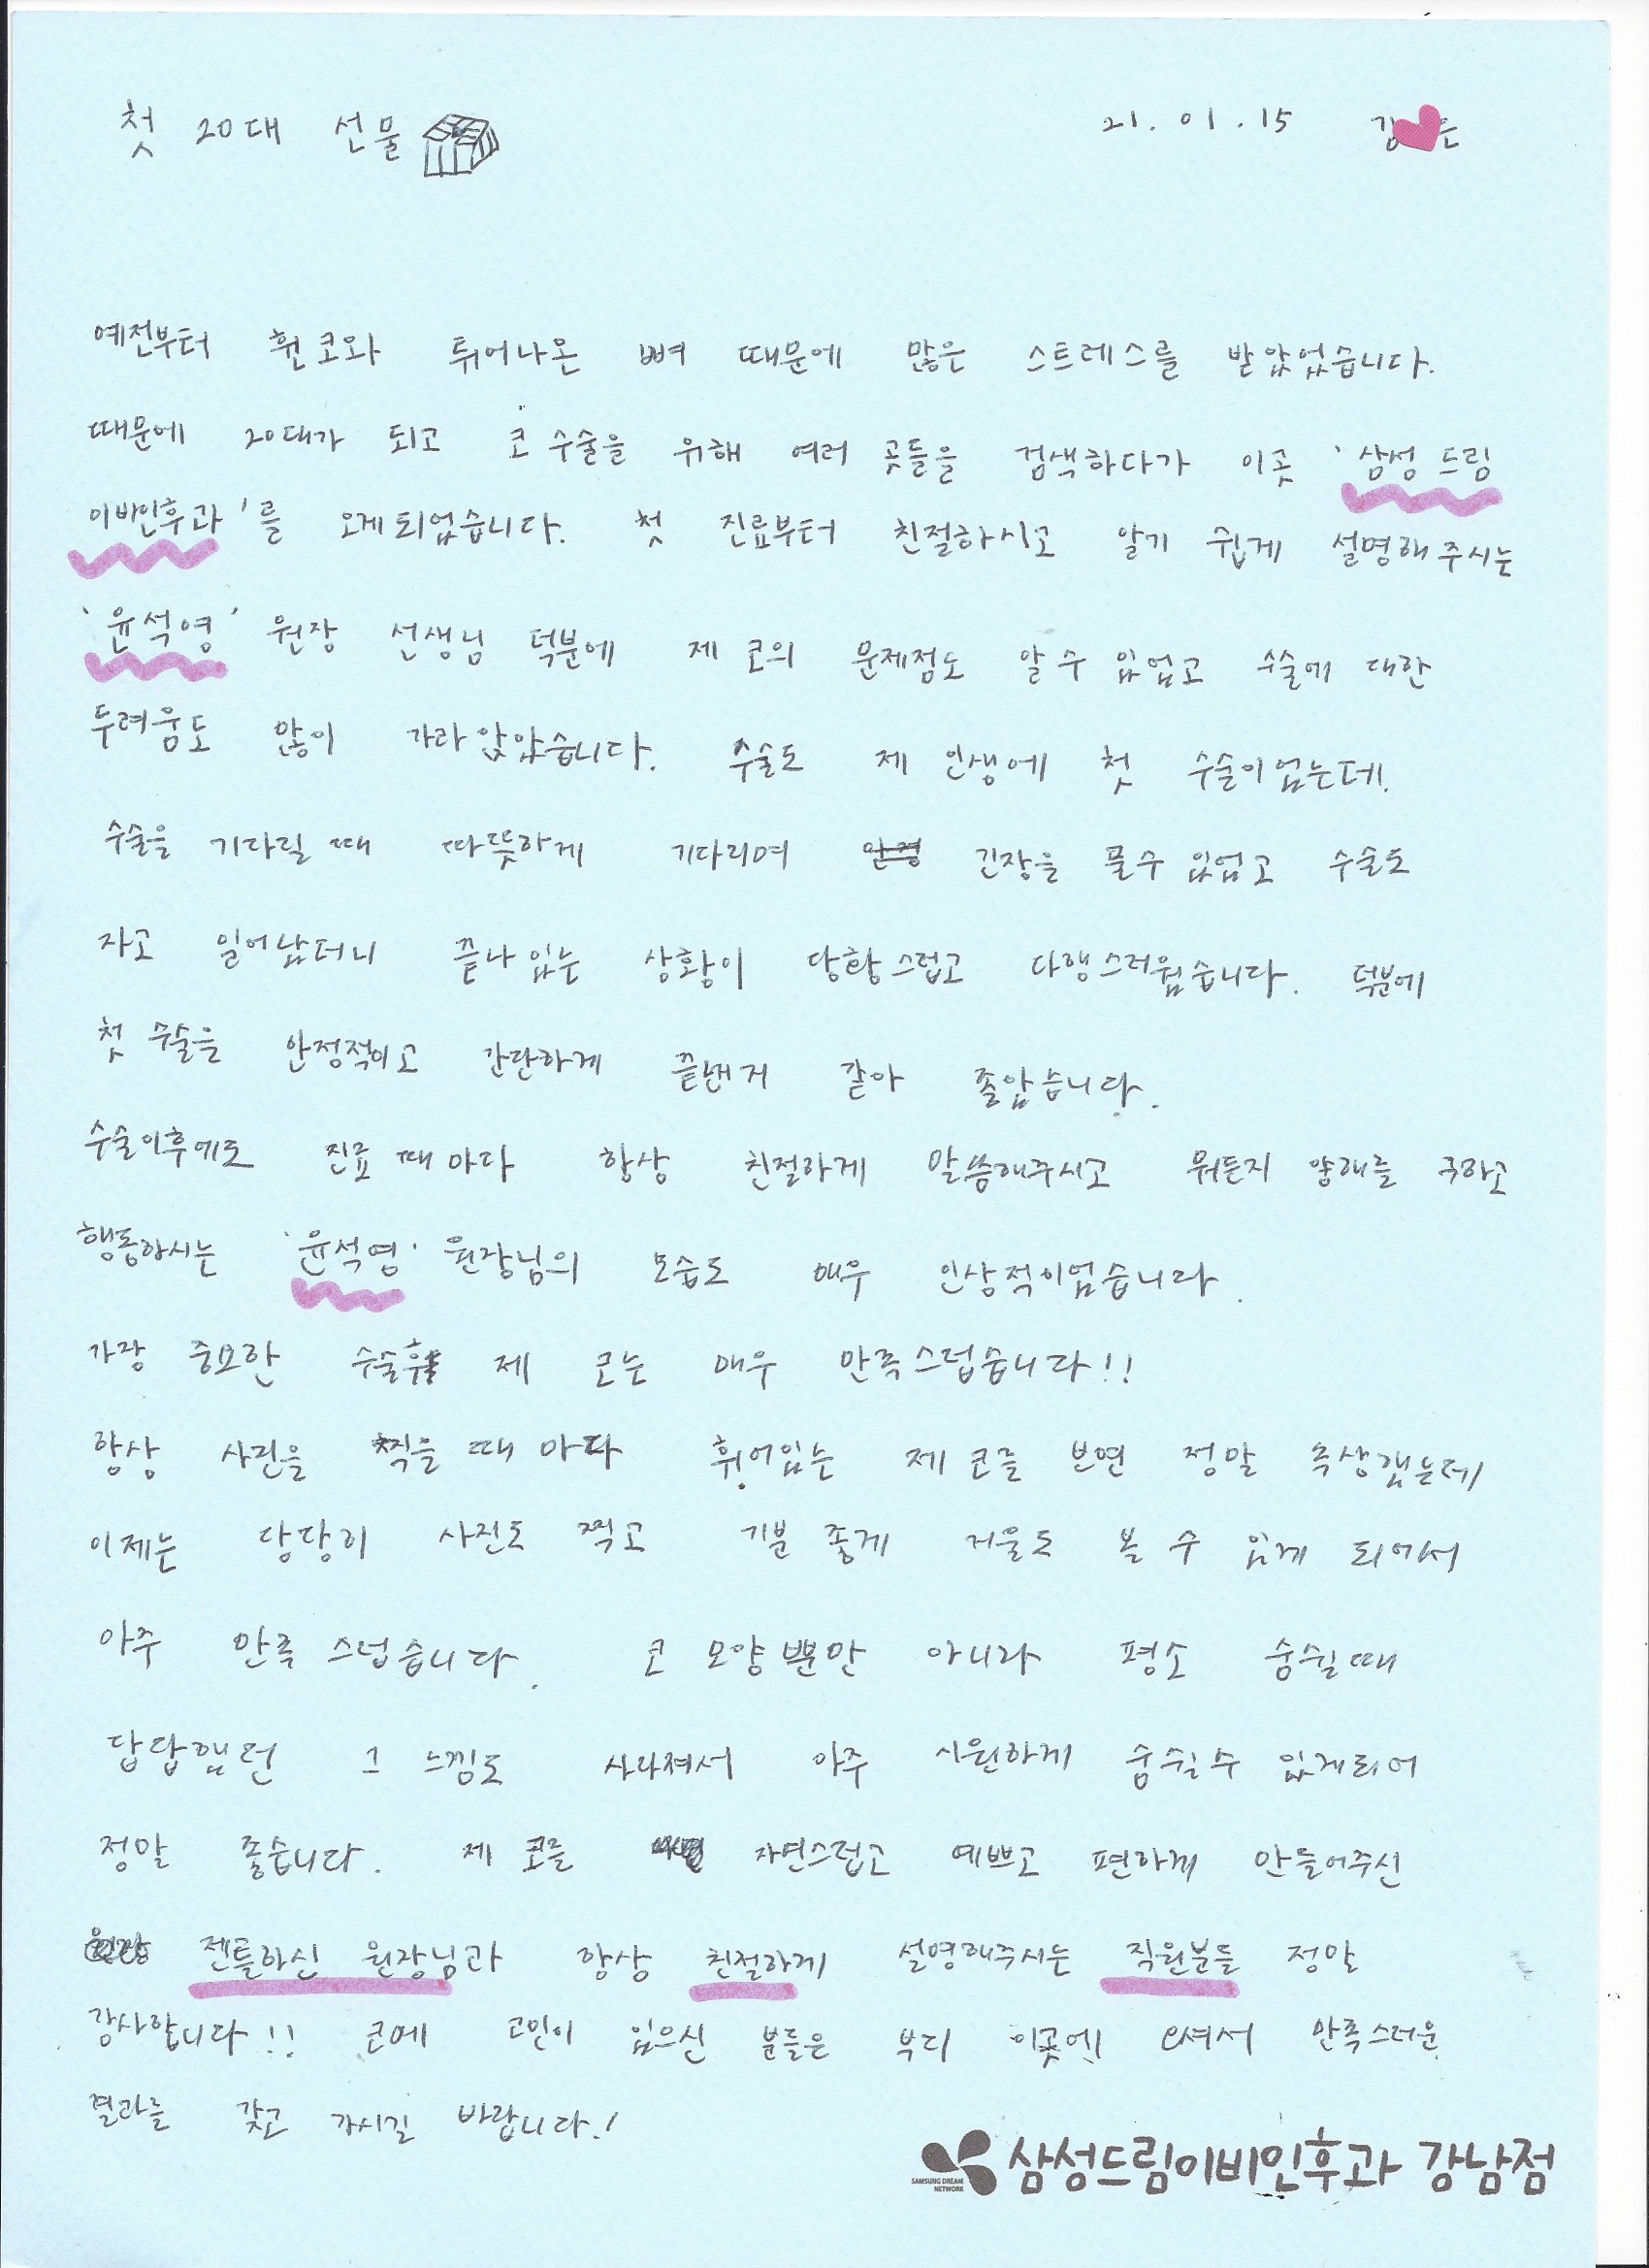 첫 20대 선물
21. 01. 15 김 은
예전부터 휜 코와 튀어나온 뼈 때문에 많은 스트레스를 받았었습니다.
때문에 20대가 되고 코 수술을 위해 여러 곳들을 검색하다가 이곳 '삼성 드림
이비인후과'를 오게되었습니다. 첫 진료부터 친절하시고 알기 쉽게 설명해주시는
'윤석영' 원장 선생님 덕분에 제 코의 문제점도 알 수 있었고 수술에 대한
두려움도 많이 가라 앉았습니다. 수술도 제 인생에 첫 수술이었는데
수술을 기다릴 때 따뜻하게 기다리며 긴장을 풀수 있었고 수술도
자고 일어났더니 끝나있는 상황이 당황스럽고 다행스러웠습니다. 덕분에
첫 수술을 안정적이고 간단하게 끝낸거 같아 좋았습니다.
수술이후에도 진료 때 마다 항상 친절하게 말씀해주시고 뭐든지 양해를 구하고
행동하시는 '윤석영' 원장님의 모습도 매우 인상적이었습니다.
가장 중요한 수술후 제 코는 매우 만족스럽습니다!!
항상 사진을 찍을 때 마다 휘어있는 제 코를 보면 정말 속상했는데
이제는 당당히 사진도 찍고 기분 좋게 거울도 볼 수 있게 되어서
아주 만족 스럽습니다. 코 모양 뿐만 아니라 평소 숨쉴때
답답했던 그 느낌도 사라져서 아주 시원하게 숨쉴수 있게되어
정말 좋습니다. 제 코를 자연스럽고 예쁘고 편하게 만들어주신
젠틀하신 원장님과 항상 친절하게 설명해주시는 직원분들 정말
감사합니다!! 코에 고민이 있으신 분들은 부디 이곳에 오셔서 만족스러운
결과를 갖고 가시길 바랍니다!
SAMSUNG DREAM NETWORK 삼성드림이비인후과 강남점